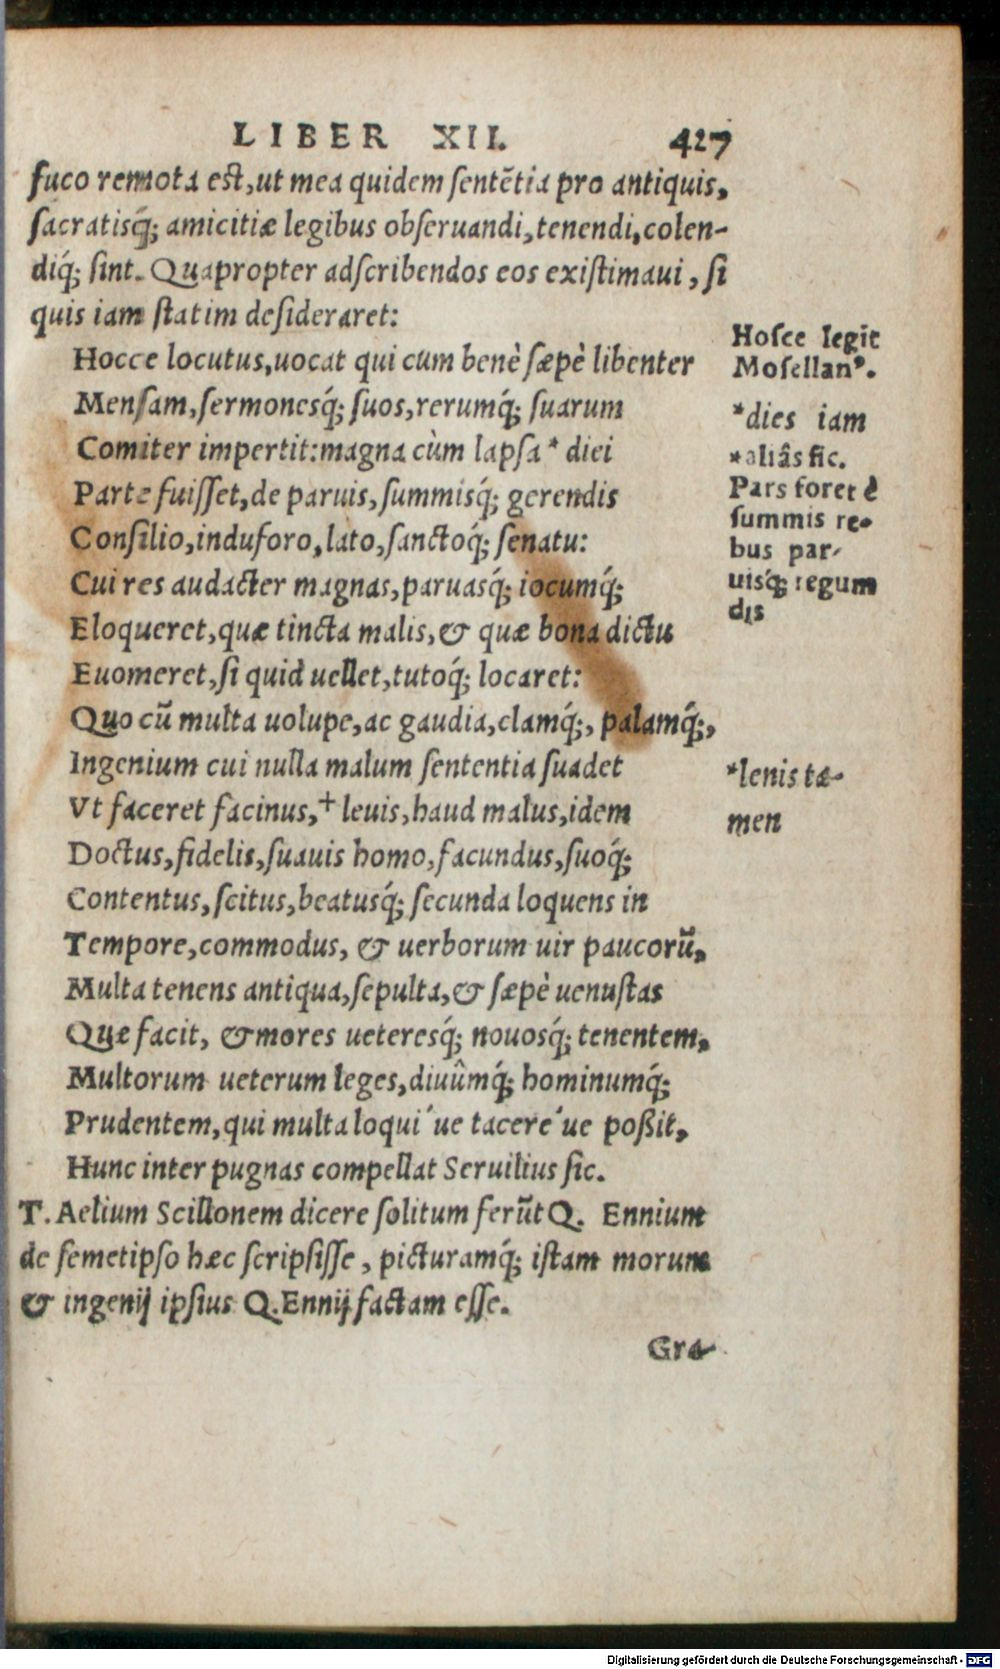 LIBER XII. 427
fuco remota est, ut mea quidem sentētia pro antiquis,
sacratisq́; amicitiæ legibus obseruandi, tenendi, colen-
diq́; sint. Quapropter adscribendos eos existimaui, si
quis iam statim desideraret:
Hocce locutus, uocat qui cum benè sæpè libenter
Mensam, sermonesq́; suos, rerumq́; suarum
Comiter impertit: magna cùm lapsa * diei
Parte fuisset, de paruis, summisq́; gerendis
Consilio, induforo, lato, sanctoq́; senatu:
Cui res audacter magnas, paruasq́; iocumq́;
Eloqueret, quæ tincta malis, & quæ bona dictu
Euomeret, si quid uellet, tutoq́; locaret:
Quo cū multa uolupe, ac gaudia, clamq́;, palamq́;,
Ingenium cui nulla malum sententia suadet
Vt faceret facinus, + leuis, haud malus, idem
Doctus, fidelis, suauis homo, facundus, suoq́;
Contentus, scitus, beatusq́; secunda loquens in
Tempore, commodus, & uerborum uir paucorū,
Multa tenens antiqua, sepulta, & sæpè uenustas
Quæ facit, & mores ueteresq́; nouosq́; tenentem,
Multorum ueterum leges, diuûmq́; hominumq́;
Prudentem, qui multa loqui´ue tacere´ue poßit,
Hunc inter pugnas compellat Seruilius sic.
T. Aelium Scillonem dicere solitum ferūt Q. Ennium
de semetipso hæc scripsisse, picturamq́; istam morum
& ingenij ipsius Q. Ennij factam esse.
Gra-
Hosce legit
Mosellanꝰ.
*dies iam
*aliâs sic.
Pars foret è
summis re-
bus par-
uisq́; regum
dis
*lenis ta-
men
Digitalisierung gefördert durch die Deutsche Forschungsgemeinschaft - DFG